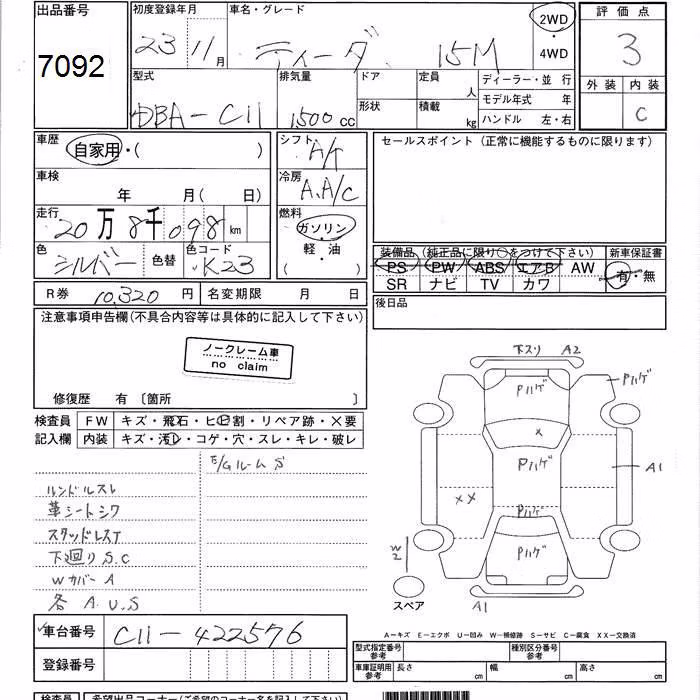 出品番号
7092
初度登録年月
23 11月
車名・グレード
ティーダ 15M
2WD
・
4WD
評価点
3
外装 内装
C
型式
DBA-C11
排気量
1,500 cc
ドア
形状
定員 人
積載 kg
ディーラー・並行
モデル年式 年
ハンドル 左・右
車歴
自家用・( )
車検
年 月( 日)
走行
20万8千098km
色
シルバー
色替
色コード
K23
シフト
A/T
冷房
A.A/C
燃料
ガソリン
・
軽・油
( )
セールスポイント (正常に機能するものに限ります)
装備品 (純正品に限り○をつけて下さい)
PS PW ABS エアB AW
SR ナビ TV カワ
新車保証書
有・無
R券 10,320円
名変期限 月 日
後日品
注意事項申告欄(不具合内容等は具体的に記入して下さい)
ノークレーム車
no claim
修復歴 有 〔箇所 〕
検査員
記入欄
FW キズ・飛石・ヒビ割・リペア跡・×要
内装 キズ・汚レ・コゲ・穴・スレ・キレ・破レ
E/Gルーム S
ハンドルスレ
革シートシワ
スタッドレスT
下廻りS.C
WカバーA
各 A.U.S
下スリ A2
Pハゲ
Pハゲ
×
Pハゲ
A1
××
Pハゲ
Pハゲ
W2
スペア
A1
A-キズ E-エクボ U-凹み W-補修跡 S-サビ C-腐食 XX-交換済
車台番号 C11-422576
登録番号
型式指定番号
参考
種別区分番号
参考
車庫証明用
参考
長さ cm
幅 cm
高さ cm
検査員
希望出品コーナー(ご希望のコーナー名を記入して下さい)